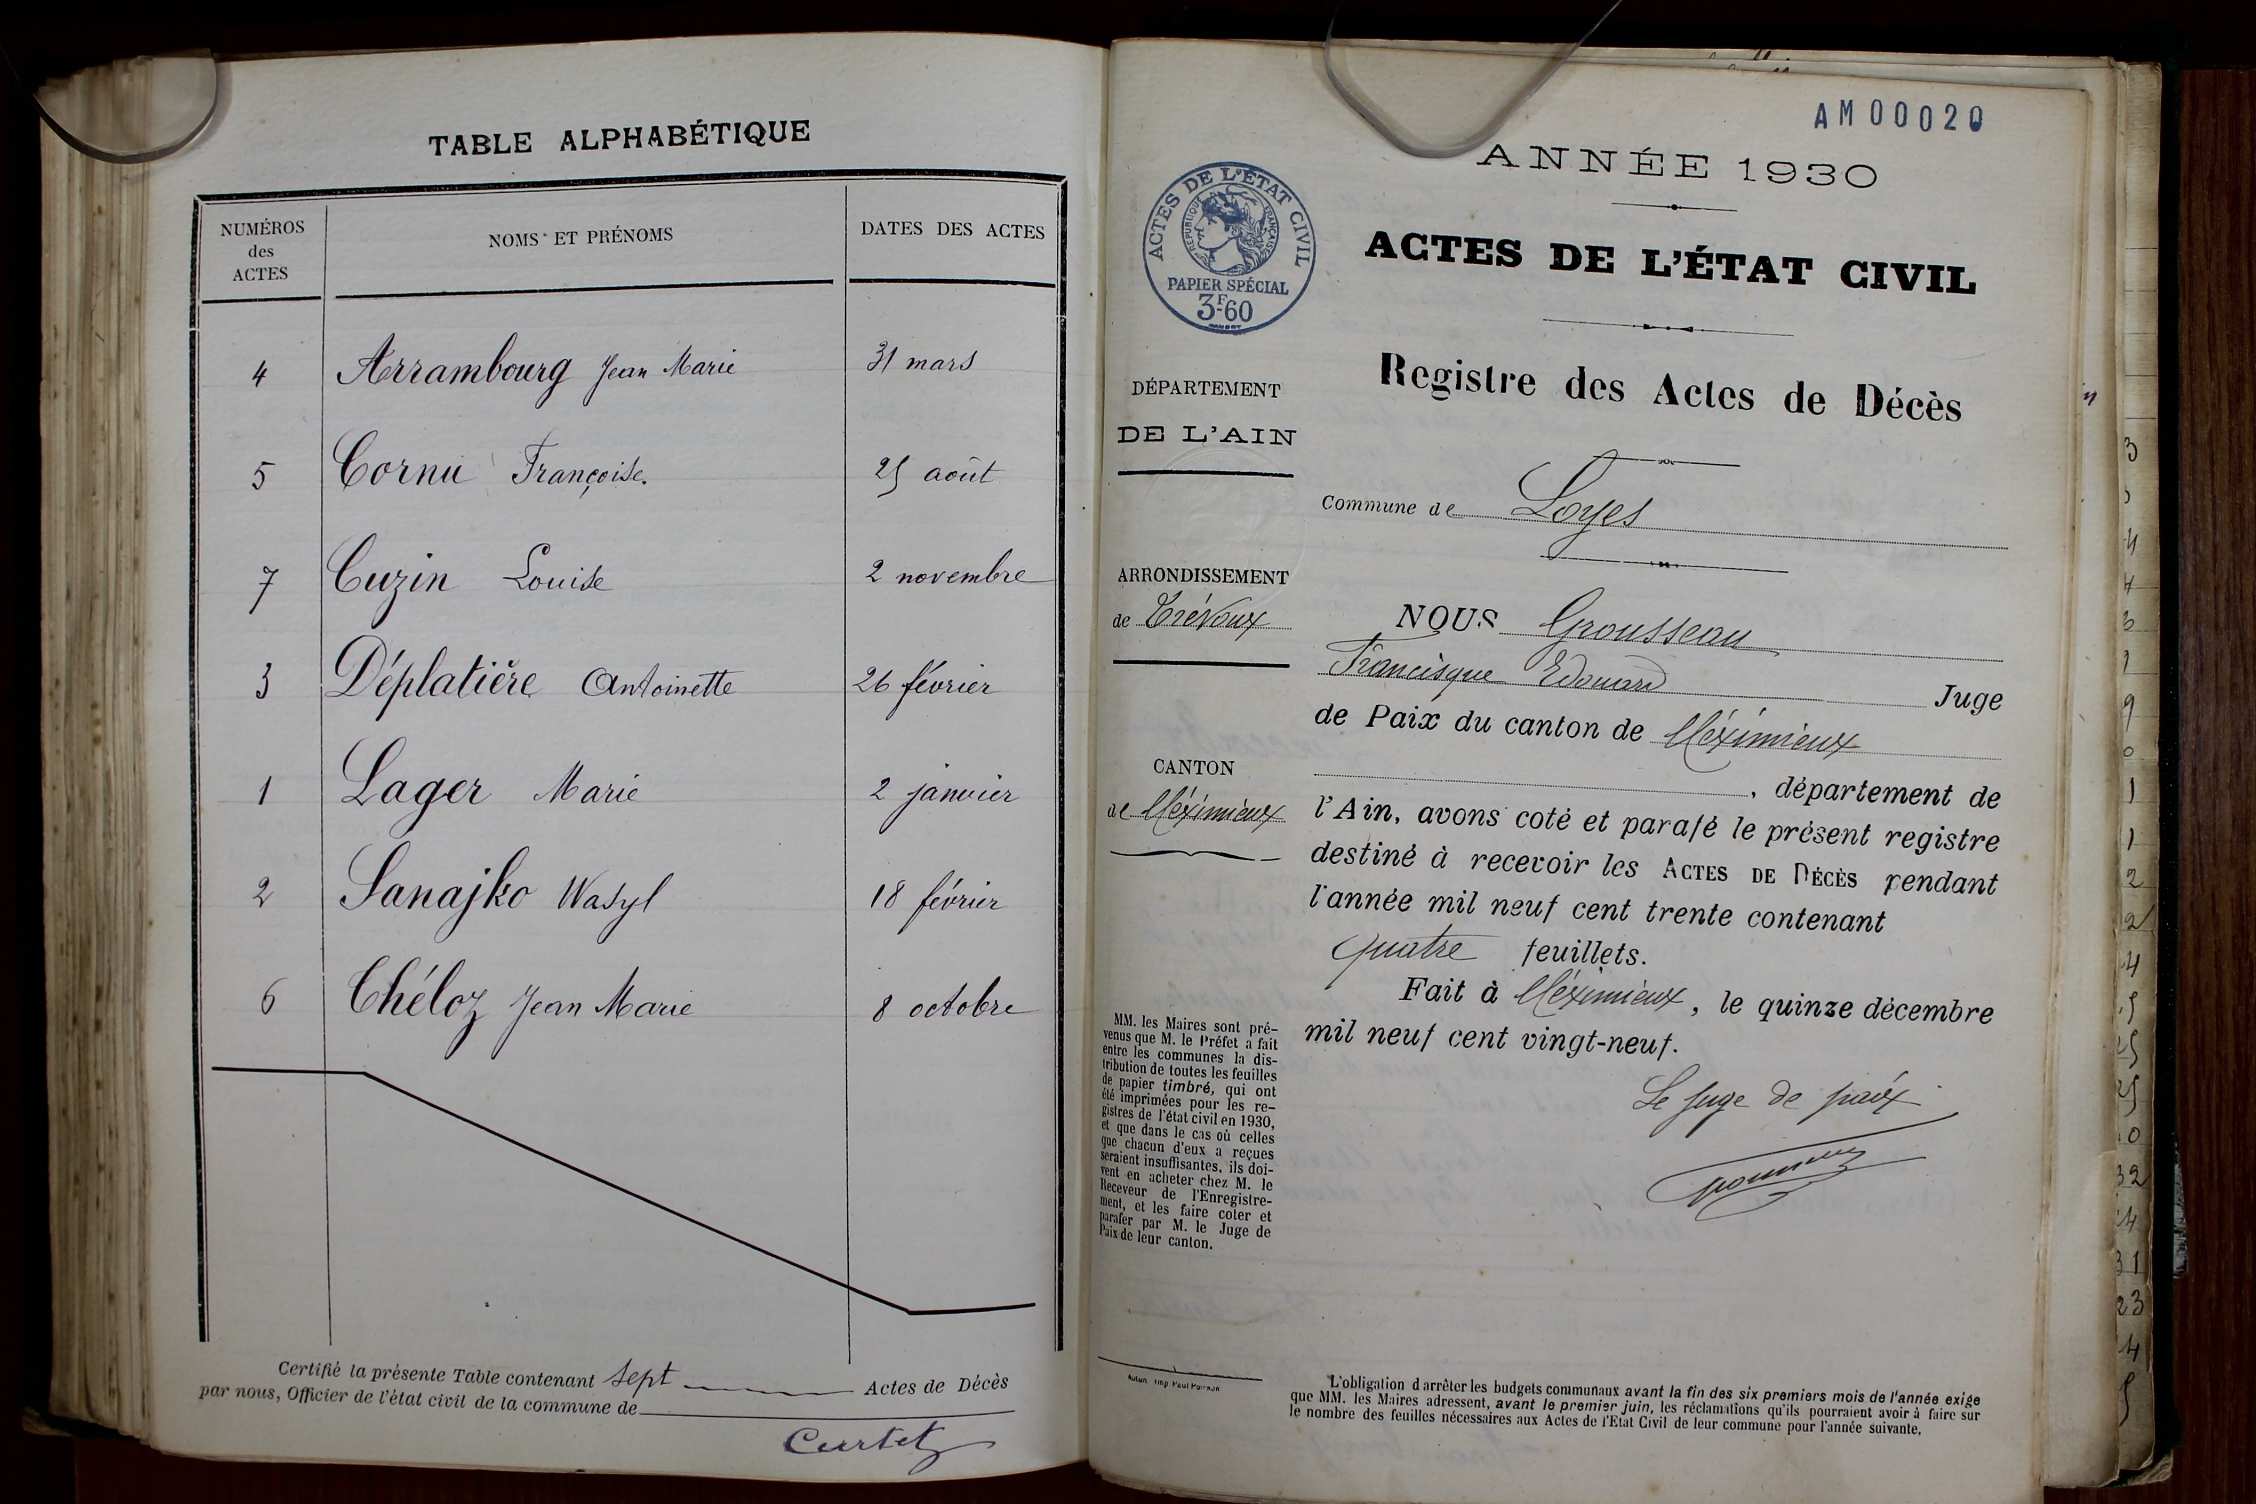 TABLE ALPHABÉTIQUE
NUMÉROS des ACTES
NOMS ET PRÉNOMS
DATES DES ACTES
4 Arrambourg Jean Marie 31 mars
5 Cornu Françoise. 25 août
7 Cuzin Louise 2 novembre
3 Déplatière Antoinette 26 février
1 Lager Marie 2 janvier
2 Sanajko Wasyl 18 février
6 Chéloz Jean Marie 8 octobre
Certifié la présente Table contenant sept Actes de Décès
par nous, Officier de l'état civil de la commune de
Curtet
AM00020
ANNÉE 1930
ACTES DE L'ÉTAT CIVIL
RÉPUBLIQUE FRANÇAISE
PAPIER SPÉCIAL
3F60
ACTES DE L'ÉTAT CIVIL
Registre des Actes de Décès
DÉPARTEMENT
DE L'AIN
Commune de Loyes
ARRONDISSEMENT
de Trévoux
CANTON
de Méximieux
NOUS Grousseau
Francisque Edouard Juge
de Paix du canton de Méximieux
, département de
l'Ain, avons coté et parafé le présent registre
destiné à recevoir les ACTES DE DÉCÈS pendant
l'année mil neuf cent trente contenant
quatre feuillets.
Fait à Méximieux, le quinze décembre
mil neuf cent vingt-neuf.
Le juge de paix
MM. les Maires sont pré-
venus que M. le Préfet a fait
entre les communes la dis-
tribution de toutes les feuilles
de papier timbré, qui ont
été imprimées pour les re-
gistres de l'état civil en 1930,
et que dans le cas où celles
que chacun d'eux a reçues
seraient insuffisantes, ils doi-
vent en acheter chez M. le
Receveur de l'Enregistre-
ment, et les faire coter et
parafer par M. le Juge de
Paix de leur canton.
L'obligation d'arrêter les budgets communaux avant la fin des six premiers mois de l'année exige
que MM. les Maires adressent, avant le premier juin, les réclamations qu'ils pourraient avoir à faire sur
le nombre des feuilles nécessaires aux Actes de l'Etat Civil de leur commune pour l'année suivante.